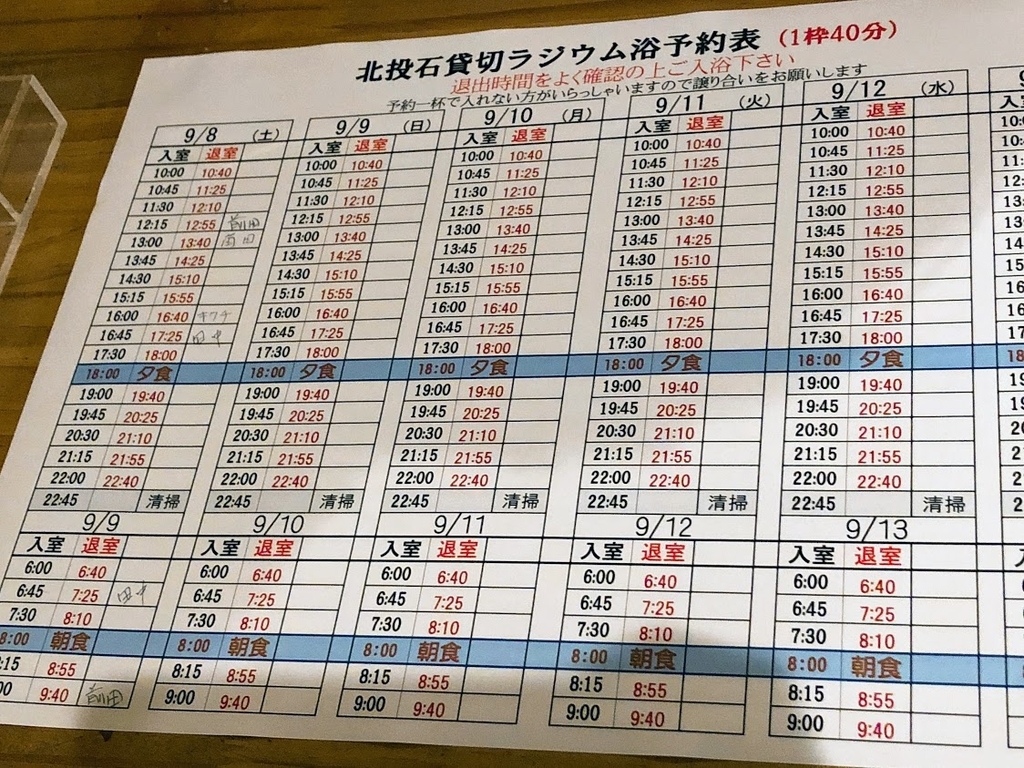 北投石貸切ラジウム浴予約表（1枠40分）
退出時間をよく確認の上ご入浴下さい
予約一杯で入れない方がいらっしゃいますので譲り合いをお願いします
9/8 （土）
入室 退室
10:00 10:40
10:45 11:25
11:30 12:10
12:15 12:55 前田
13:00 13:40 前田
13:45 14:25
14:30 15:10
15:15 15:55
16:00 16:40 キクチ
16:45 17:25 田中
17:30 18:00
18:00 夕食
19:00 19:40
19:45 20:25
20:30 21:10
21:15 21:55
22:00 22:40
22:45 清掃
9/9
入室 退室
6:00 6:40
6:45 7:25 田中
7:30 8:10
8:00 朝食
8:15 8:55
9:40 前田
9/9 （日）
入室 退室
10:00 10:40
10:45 11:25
11:30 12:10
12:15 12:55
13:00 13:40
13:45 14:25
14:30 15:10
15:15 15:55
16:00 16:40
16:45 17:25
17:30 18:00
18:00 夕食
19:00 19:40
19:45 20:25
20:30 21:10
21:15 21:55
22:00 22:40
22:45 清掃
9/10
入室 退室
6:00 6:40
6:45 7:25
7:30 8:10
8:00 朝食
8:15 8:55
9:00 9:40
9/10 （月）
入室 退室
10:00 10:40
10:45 11:25
11:30 12:10
12:15 12:55
13:00 13:40
13:45 14:25
14:30 15:10
15:15 15:55
16:00 16:40
16:45 17:25
17:30 18:00
18:00 夕食
19:00 19:40
19:45 20:25
20:30 21:10
21:15 21:55
22:00 22:40
22:45 清掃
9/11
入室 退室
6:00 6:40
6:45 7:25
7:30 8:10
8:00 朝食
8:15 8:55
9:00 9:40
9/11 （火）
入室 退室
10:00 10:40
10:45 11:25
11:30 12:10
12:15 12:55
13:00 13:40
13:45 14:25
14:30 15:10
15:15 15:55
16:00 16:40
16:45 17:25
17:30 18:00
18:00 夕食
19:00 19:40
19:45 20:25
20:30 21:10
21:15 21:55
22:00 22:40
22:45 清掃
9/12
入室 退室
6:00 6:40
6:45 7:25
7:30 8:10
8:00 朝食
8:15 8:55
9:00 9:40
9/12 （水）
入室 退室
10:00 10:40
10:45 11:25
11:30 12:10
12:15 12:55
13:00 13:40
13:45 14:25
14:30 15:10
15:15 15:55
16:00 16:40
16:45 17:25
17:30 18:00
18:00 夕食
19:00 19:40
19:45 20:25
20:30 21:10
21:15 21:55
22:00 22:40
22:45 清掃
9/13
入室 退室
6:00 6:40
6:45 7:25
7:30 8:10
8:00 朝食
8:15 8:55
9:00 9:40